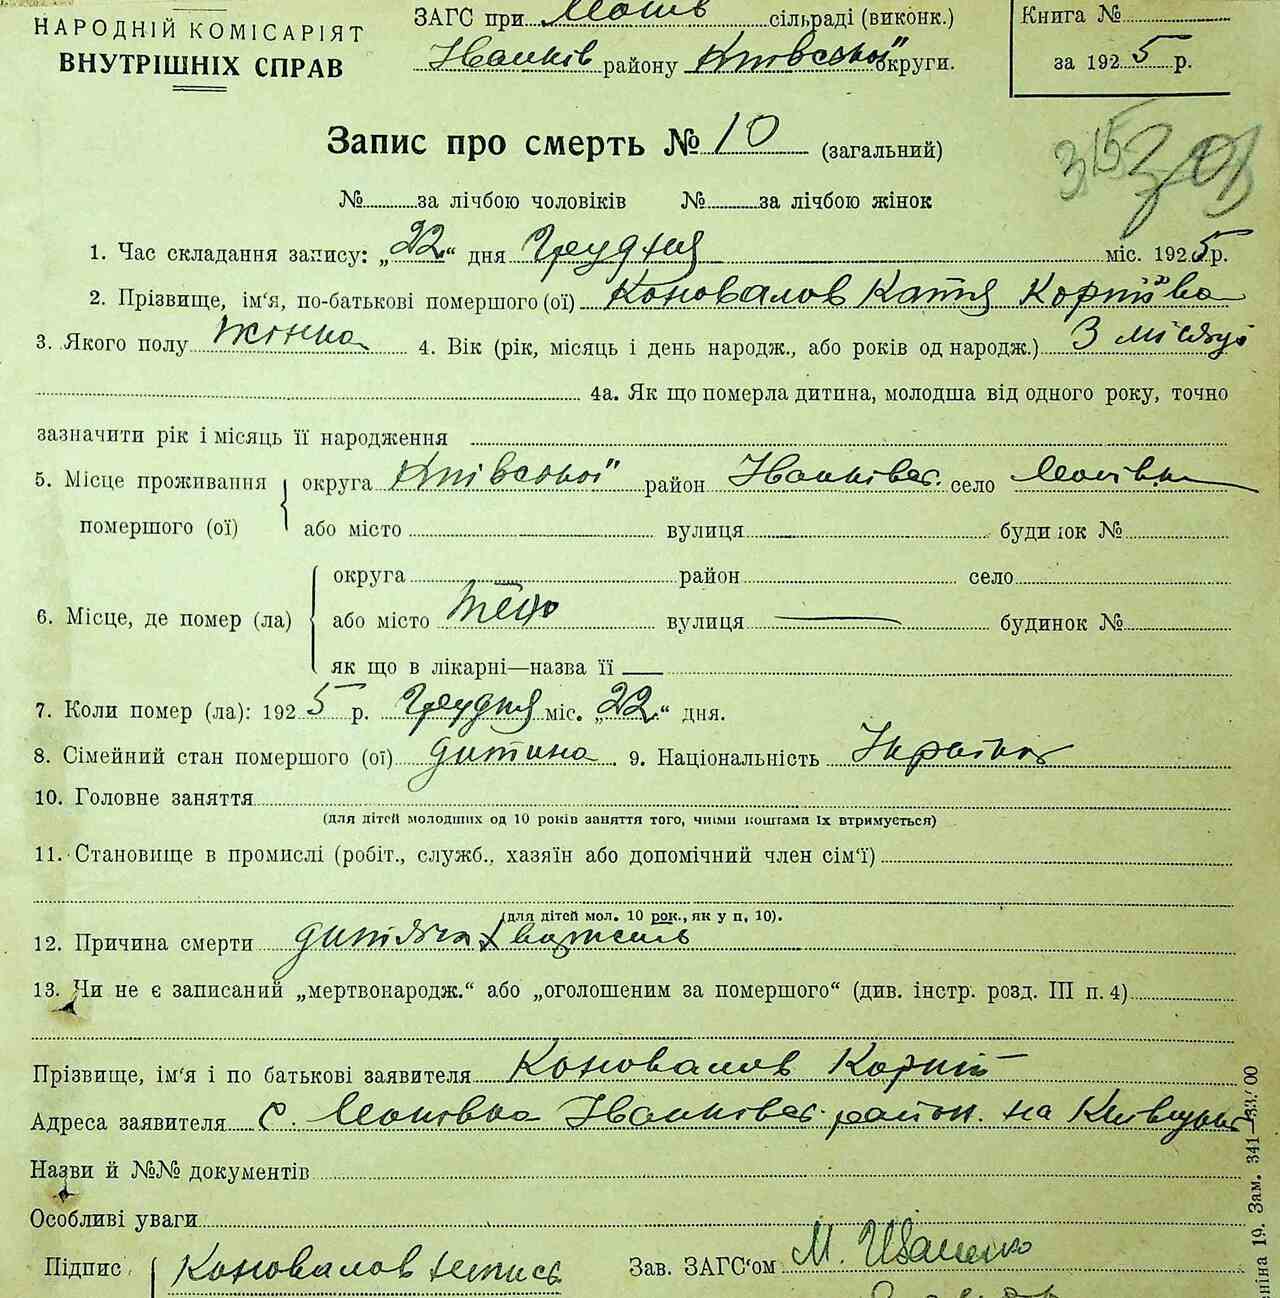 НАРОДНІЙ КОМІСАРІЯТ
ВНУТРІШНІХ СПРАВ
ЗАГС при сільраді (виконк.)
Іванків району Київської округи.
Книга №
за 1925 р.
Запис про смерть № 10 (загальний)
№ за лічбою чоловіків № за лічбою жінок
1. Час складання запису: „22“ дня Грудня міс. 1925 р.
2. Прізвище, ім'я, по-батькові помершого (ої) Коновалов Катя Корніївна
3. Якого полу жінка 4. Вік (рік, місяць і день народж., або років од народж.) 3 місяці
4а. Як що померла дитина, молодша від одного року, точно
зазначити рік і місяць її народження
5. Місце проживання помершого (ої) округа Київської район Іванківськ. село
або місто вулиця будинок №
6. Місце, де помер (ла) округа район село
або місто вулиця будинок №
як що в лікарні—назва її
7. Коли помер (ла): 1925 р. Грудня міс. „22“ дня.
8. Сімейний стан помершого (ої) дитина 9. Національність
10. Головне заняття
(для дітей молодших од 10 років заняття того, чиїми коштами їх втримується)
11. Становище в промислі (робіт., служб., хазяїн або допомічний член сім'ї)
(для дітей мол. 10 рок., як у п. 10).
12. Причина смерти дитяча
13. Чи не є записаний „мертвонародж.“ або „оголошеним за помершого“ (див. інстр. розд. III п. 4)
Прізвище, ім'я і по батькові заявителя Коновалов Корній
Адреса заявителя с. Іванківськ. район. на Київщині
Назви й №№ документів
Особливі уваги
Підпис Коновалов
Зав. ЗАГС'ом М. Іваненко
19. Зам. 341